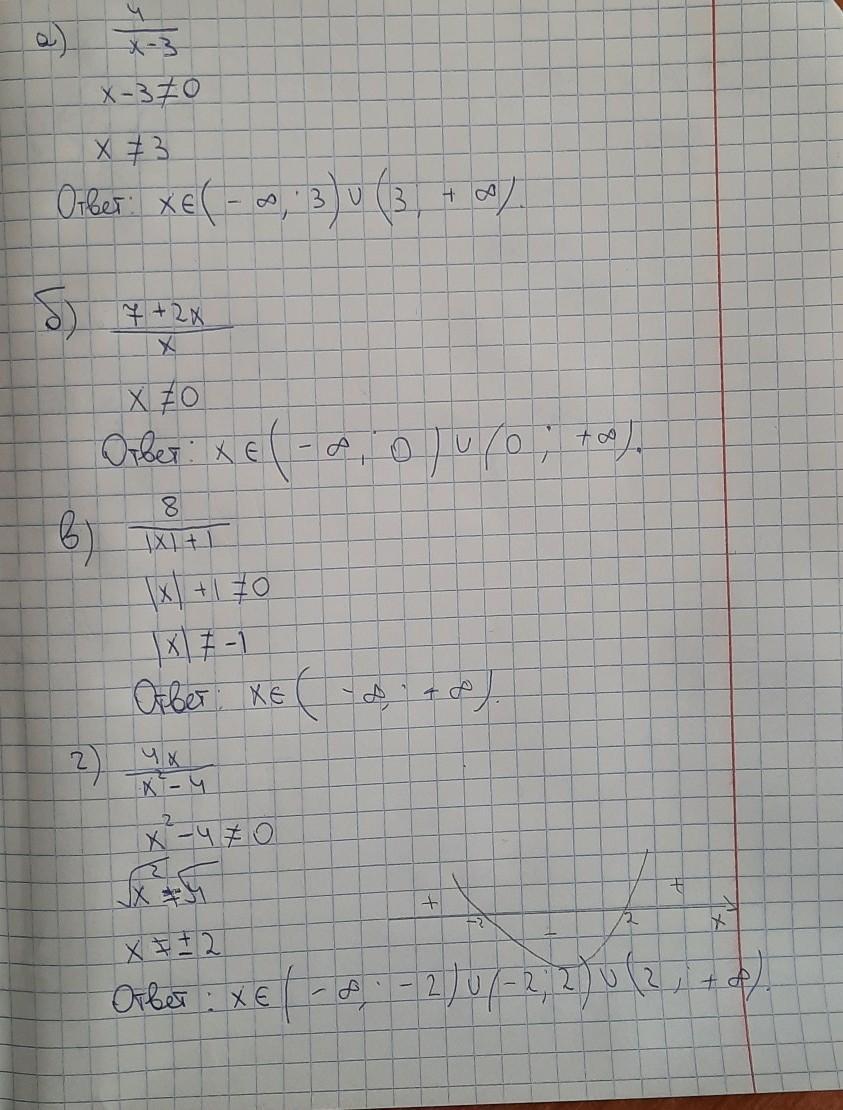 а) 4/(x-3)
x-3≠0
x≠3
Ответ: x∈(-∞; 3)∪(3; +∞).
б) (7+2x)/x
x≠0
Ответ: x∈(-∞; 0)∪(0; +∞).
в) 8/(|x|+1)
|x|+1≠0
|x|≠-1
Ответ: x∈(-∞; +∞).
г) 4x/(x²-4)
x²-4≠0
√x²≠√4
x≠±2
+ -2 - 2 + x
Ответ: x∈(-∞; -2)∪(-2; 2)∪(2; +∞).